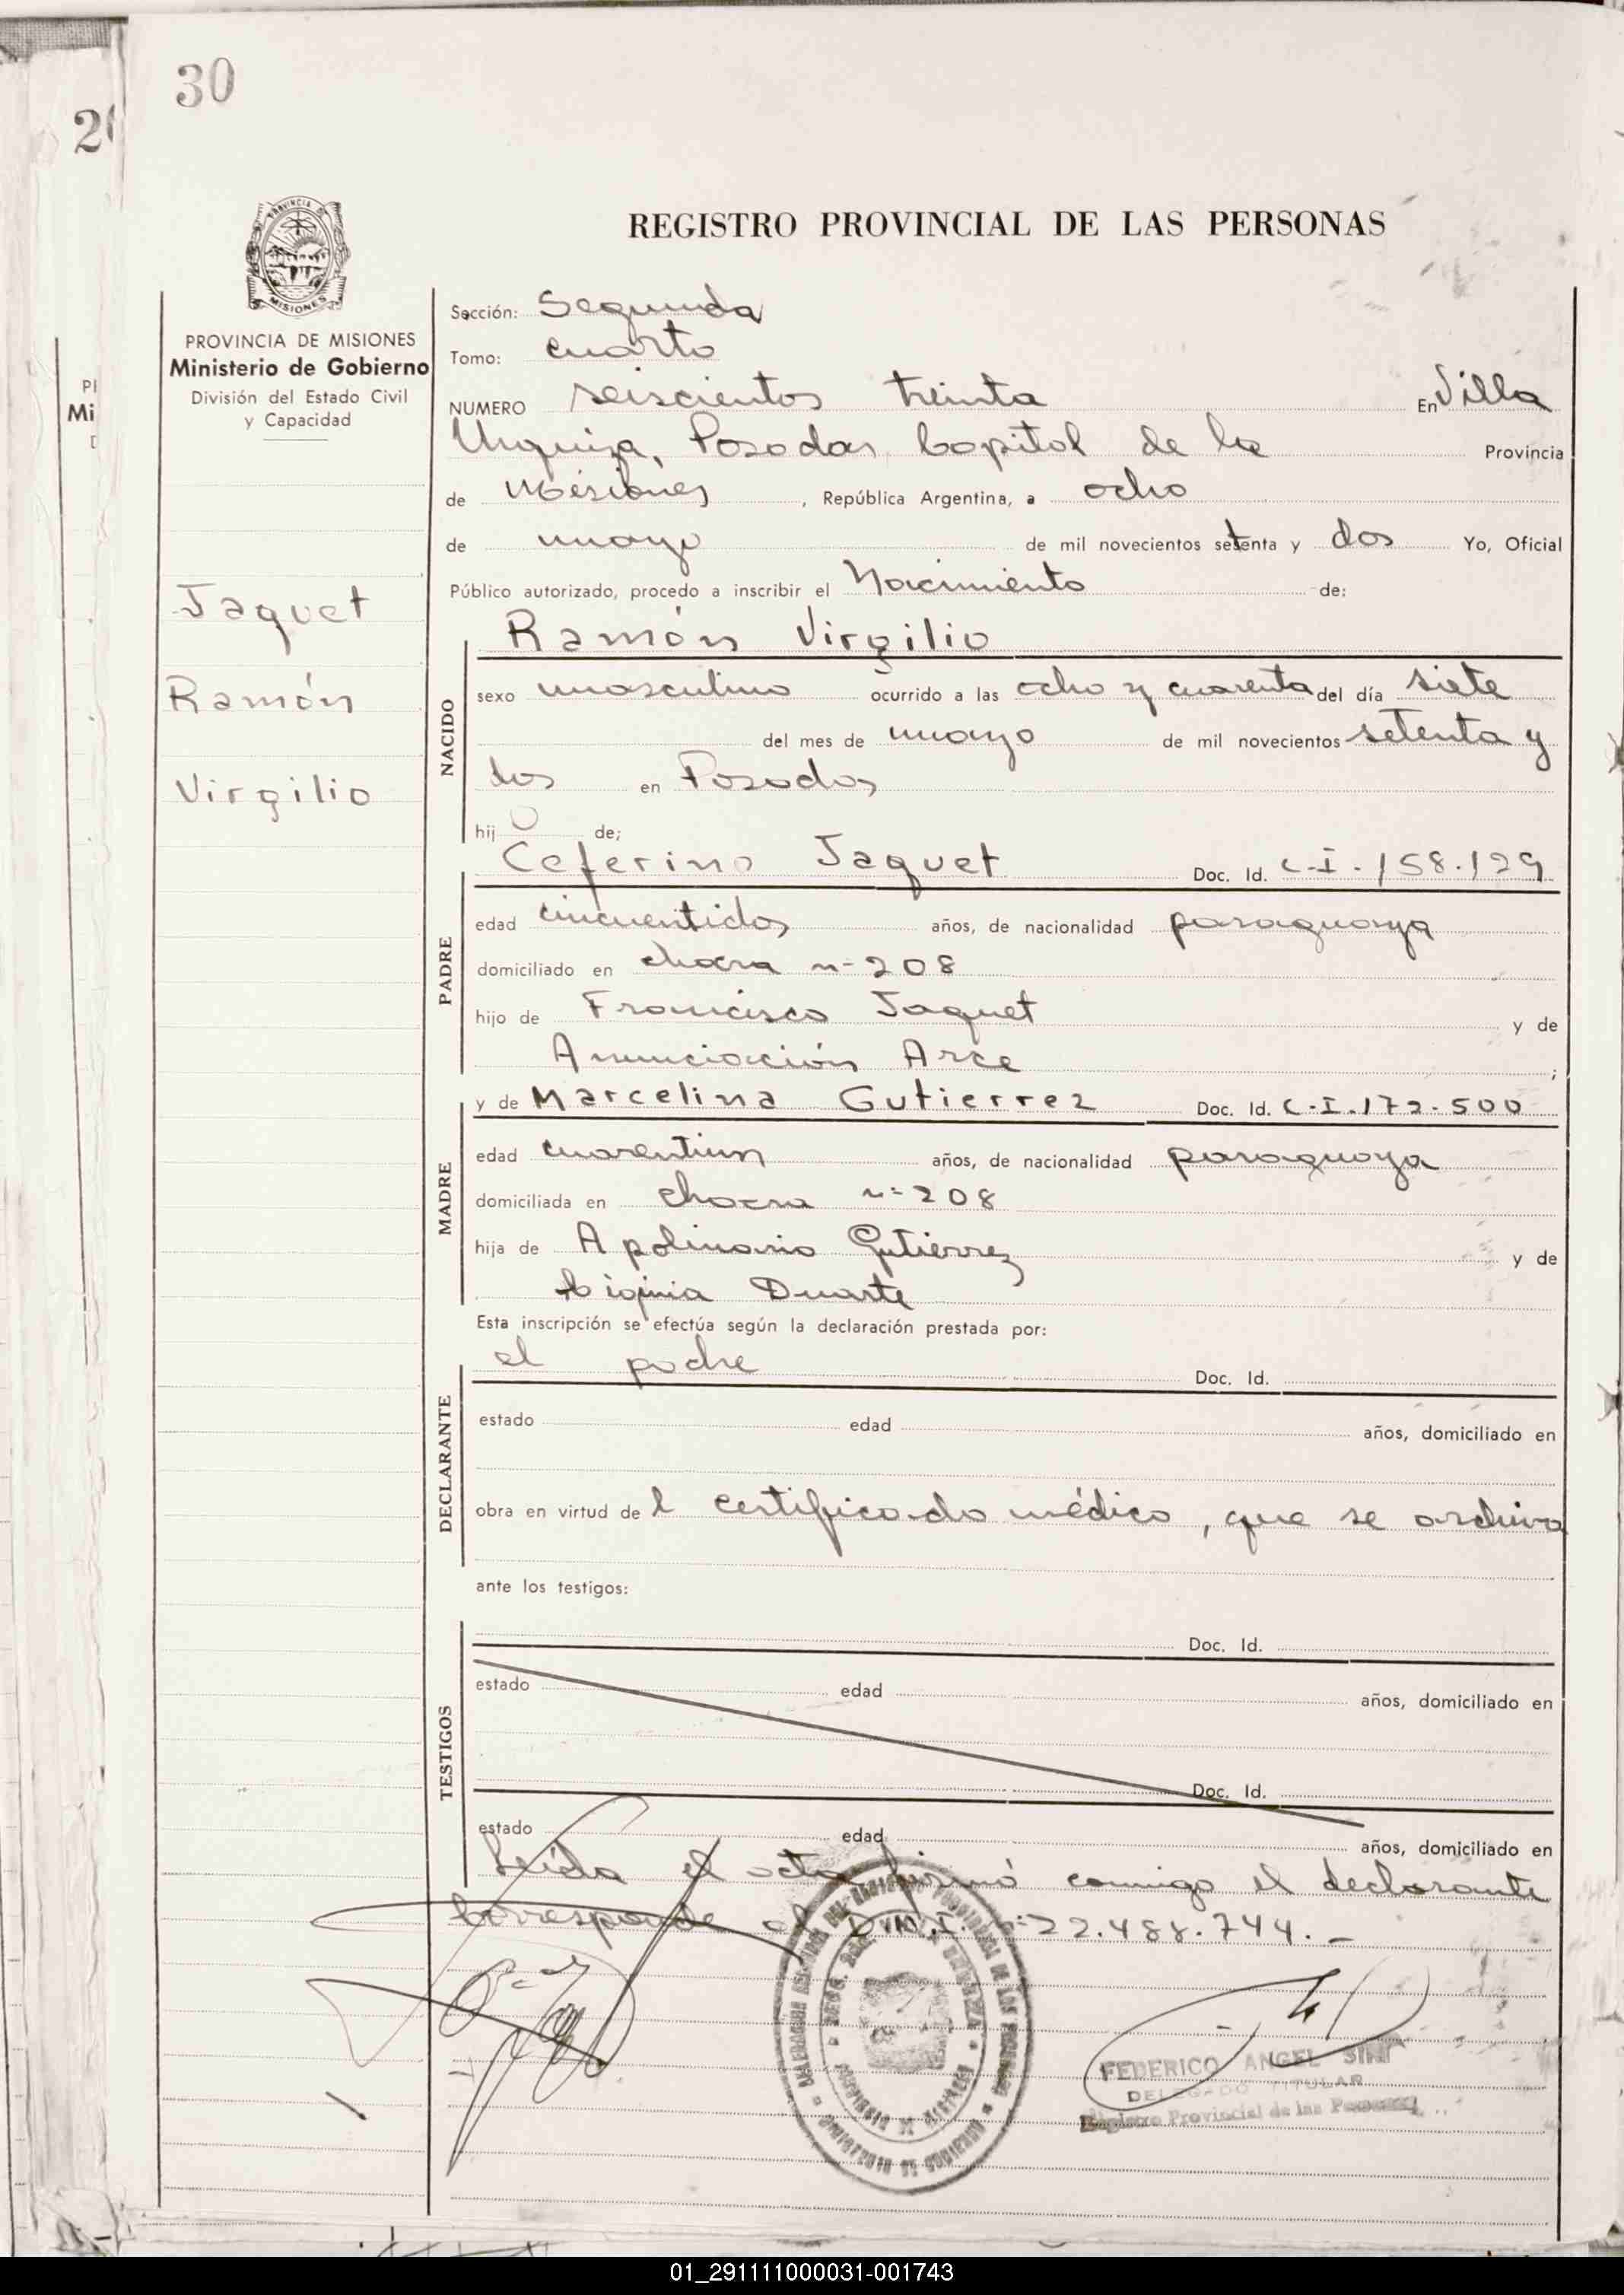 30
2
REGISTRO PROVINCIAL DE LAS PERSONAS
PROVINCIA DE MISIONES
Ministerio de Gobierno
División del Estado Civil
y Capacidad
Jaquet
Ramón
Virgilio
Sección: Segunda
Tomo: cuarto
NUMERO seiscientos treinta En Villa
Urquiza, Posadas Capital de la Provincia
de Misiones, República Argentina, a ocho
de mayo de mil novecientos setenta y dos Yo, Oficial
Público autorizado, procedo a inscribir el Nacimiento de:
Ramón Virgilio
NACIDO
sexo masculino ocurrido a las ocho y cuarenta del día siete
del mes de mayo de mil novecientos setenta y
dos en Posadas
hijo de;
Ceferino Jaquet Doc. Id. C.I. 158.129
PADRE
edad cincuentidos años, de nacionalidad paraguaya
domiciliado en chacra n= 208
hijo de Francisco Jaquet y de
Anunciación Arce ;
y de Marcelina Gutierrez Doc. Id. C.I. 172.500
MADRE
edad cuarentiun años, de nacionalidad paraguaya
domiciliada en chacra n= 208
hija de Apolinario Gutiérrez y de
Duarte
Esta inscripción se efectúa según la declaración prestada por:
el padre Doc. Id.
DECLARANTE
estado edad años, domiciliado en
obra en virtud del certificado médico, que se archiva
ante los testigos:
Doc. Id.
TESTIGOS
estado edad años, domiciliado en
Doc. Id.
estado edad años, domiciliado en
Leída el acta firmó conmigo el declarante
Corresponde el D.N.I. n= 22.488.744.-
FEDERICO ANGEL
DELEGADO TITULAR
Registro Provincial de las Personas
01_291111000031-001743